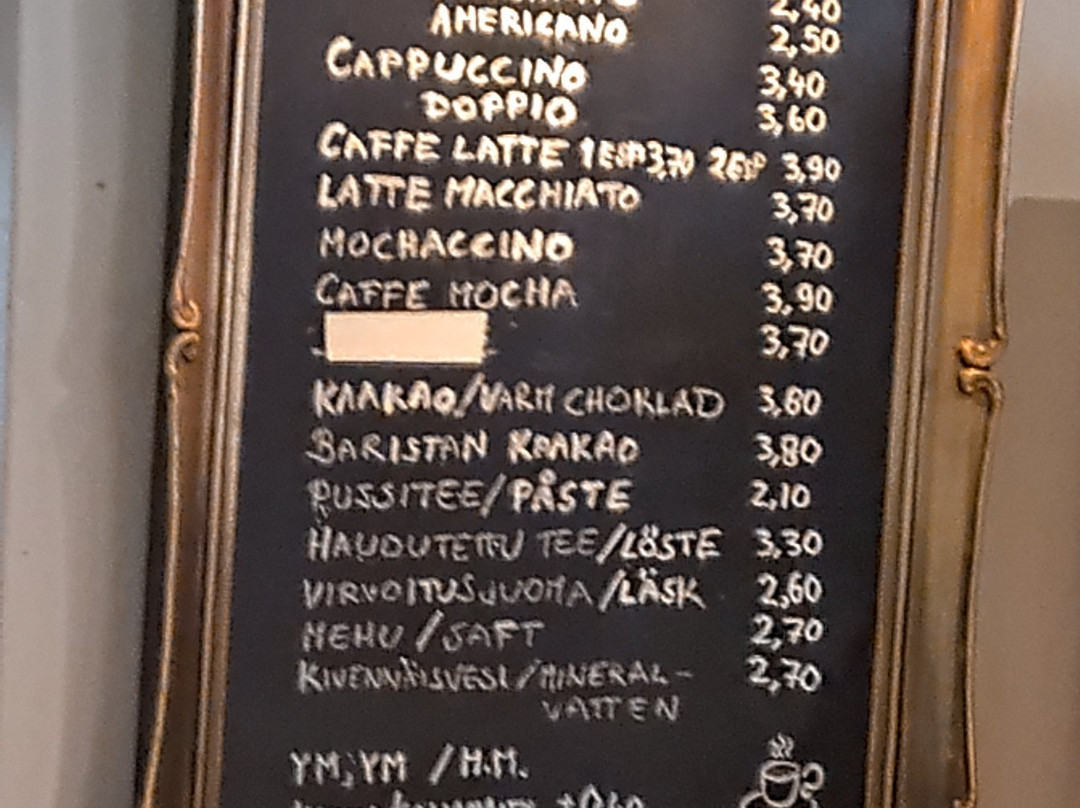 2,40
AMERICANO 2,50
CAPPUCCINO 3,40
DOPPIO 3,60
CAFFE LATTE 1ESP 3,70 2ESP 3,90
LATTE MACCHIATO 3,70
MOCHACCINO 3,70
CAFFE MOCHA 3,90
3,70
KAAKAO/VARM CHOKLAD 3,60
BARISTAN KAAKAO 3,80
PUSSITEE/PÅSTE 2,10
HAUDUTETTU TEE/LÖSTE 3,30
VIRVOITUSJUOMA/LÄSK 2,60
MEHU/SAFT 2,70
KIVENNÄISVESI/MINERAL- 2,70
VATTEN
YM, YM /H.M.